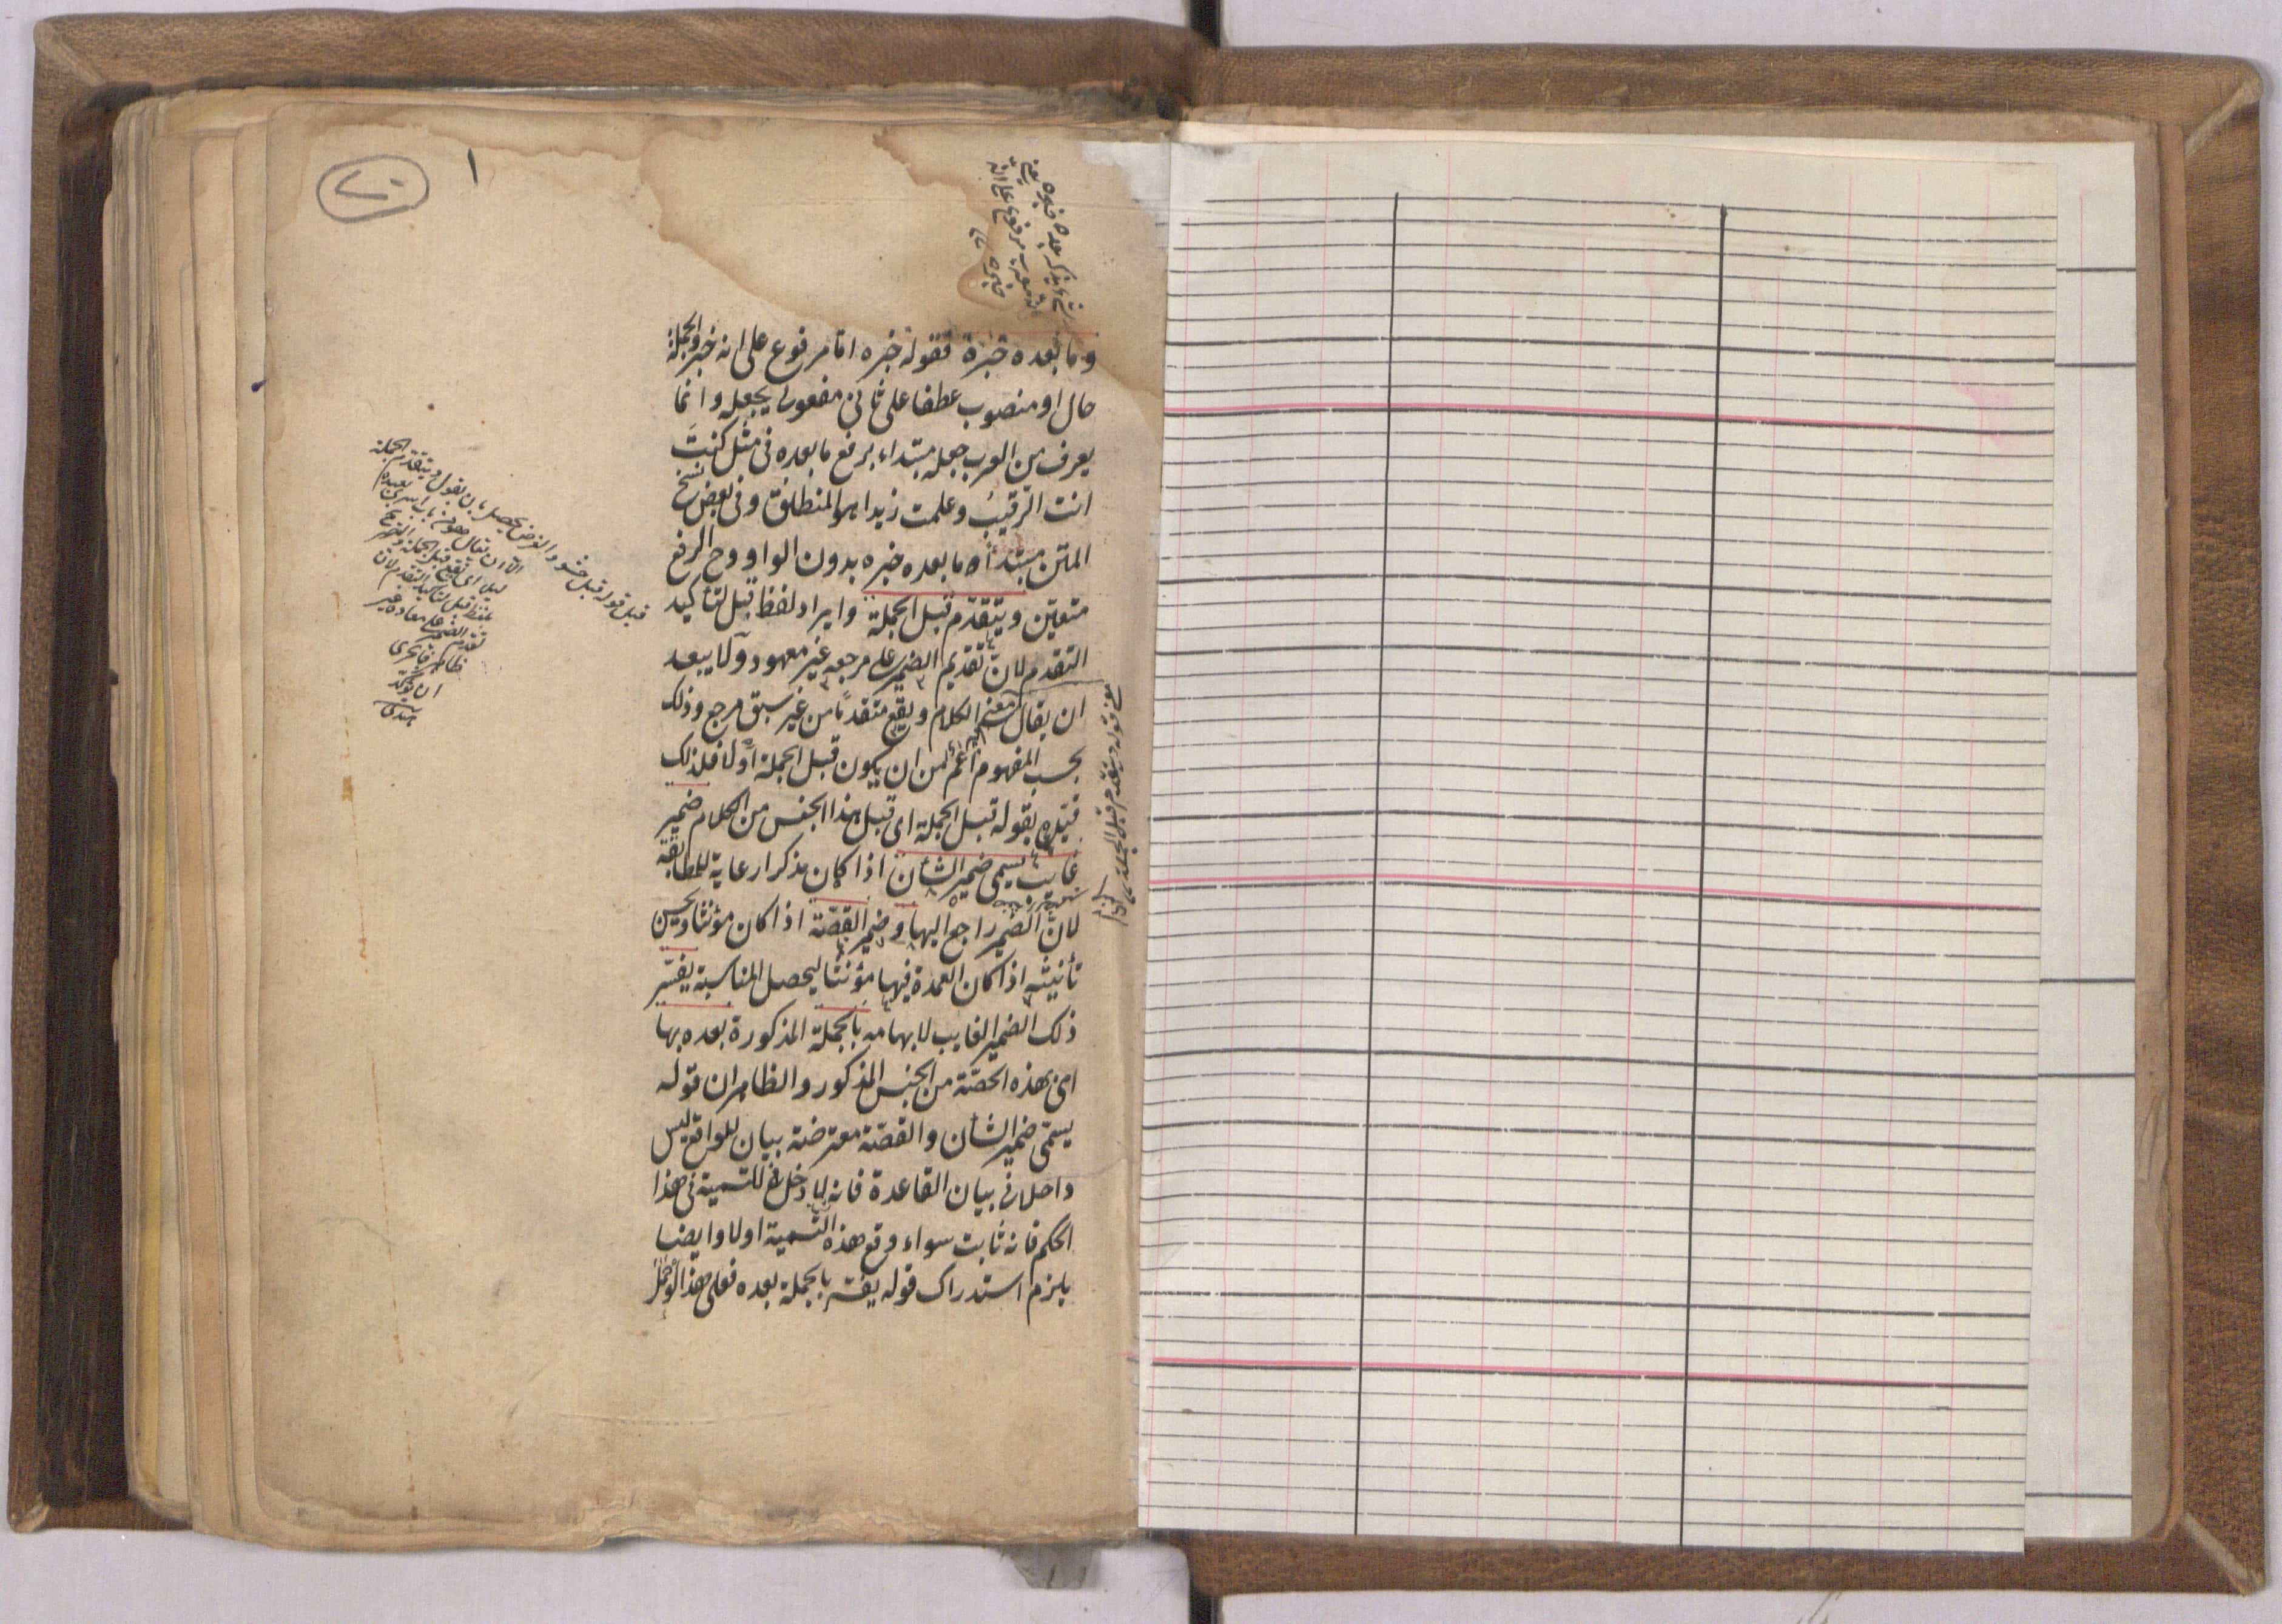 ١
وما بعده خبره فقوله خبره اما مرفوع على انه خبر والجملة
حال او منصوب عطفا على ثانى مفعولى يجعله وانما
يعرف من العرب جعله مبتداء برفع ما بعده فى مثل كنتَ
انت الرقيبُ وعلمت زيدا هو المنطلق وفى بعض نسخ
المتن مبتدأ ما بعده خبره بدون الواو وح الرفع
متعين ويتقدم قبل الجملة وايراد لفظ قبل لتأكيد
التقدم لان تقديم الضمير على مرجعه غير معهود ولا يبعد
ان يقال معنى الكلام ويقع متقدما من غير سبق مرجع وذلك
بحسب المفهوم اعم من ان يكون قبل الجملة اولا فلذلك
قيّده بقوله قبل الجملة اى قبل هذا الجنس من الكلام ضمير
غايب يسمى ضمير الشأن اذا كان مذكرا رعاية للمطابقة
لان الضمير راجع اليها وضمير القصّة اذا كان مؤنثا ويحسن
تأنيثه اذا كان العمدة فيها مؤنثا ليحصل المناسبة يفسّر
ذلك الضمير الغايب لابهامه بالجملة المذكورة بعده بها
اى بهذه الحصّة من الجنس المذكور والظاهر ان قوله
يسمّى ضمير الشأن والقصّة معترضة بيان للواقع ليس
داخلا فى بيان القاعدة فانه لا دخل للتسمية فى هذا
الحكم فانه ثابت سواء وقع هذه التسمية اولا وايضا
يلزم استدراك قوله يفسّر بالجملة بعده فعلى هذا
قيل قوله قبل حشو والغرض يحصل بان يقول ويتقدم الجملة
الا ان يقال
تقدم الضمير على معاده غير
ظاهر
ان يؤكد
هندى
قوله ويتقدم قبل الجملة